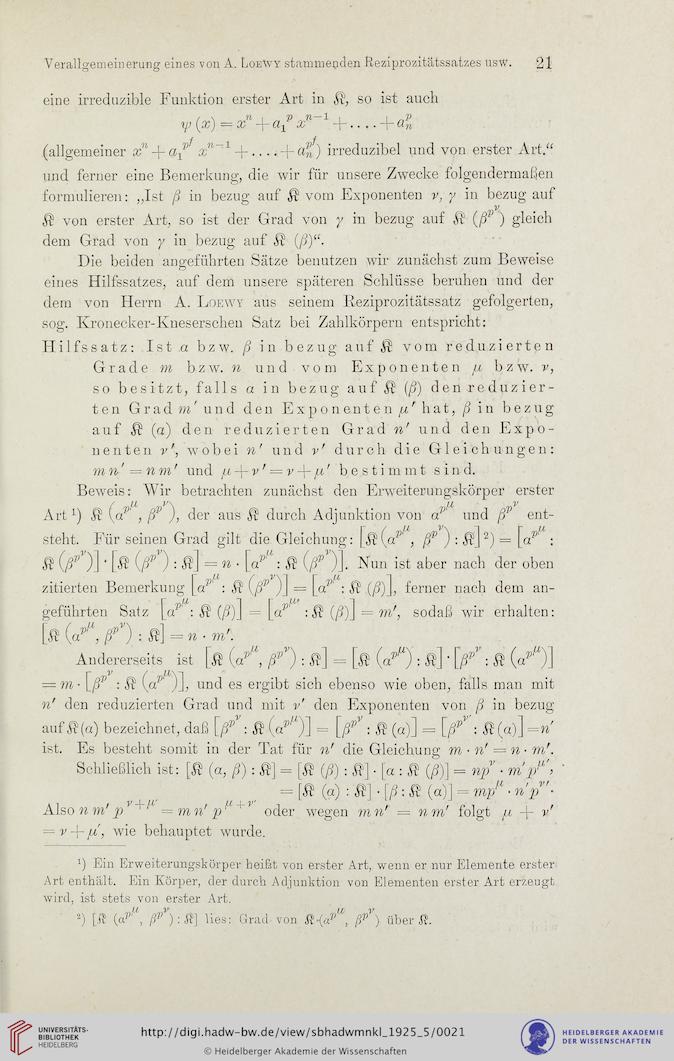 Verallgemeinerung eines von A. Loewy stammenden Reziprozitätssatzes usw. 21
eine irreduzible Funktion erster Art in 𝔎, so ist auch
ψ (x) = xⁿ + a₁^p x^{n−1} + . . . . + a_n^p
(allgemeiner xⁿ + a₁^{p^f} x^{n−1} + . . . . + a_n^{p^f}) irreduzibel und von erster Art.“
und ferner eine Bemerkung, die wir für unsere Zwecke folgendermaßen
formulieren: „Ist β in bezug auf 𝔎 vom Exponenten ν, γ in bezug auf
𝔎 von erster Art, so ist der Grad von γ in bezug auf 𝔎 (β^{p^ν}) gleich
dem Grad von γ in bezug auf 𝔎 (β)“.
Die beiden angeführten Sätze benutzen wir zunächst zum Beweise
eines Hilfssatzes, auf dem unsere späteren Schlüsse beruhen und der
dem von Herrn A. Loewy aus seinem Reziprozitätssatz gefolgerten,
sog. Kronecker-Kneserschen Satz bei Zahlkörpern entspricht:
Hilfssatz: Ist α bzw. β in bezug auf 𝔎 vom reduzierten
Grade m bzw. n und vom Exponenten μ bzw. ν,
so besitzt, falls α in bezug auf 𝔎 (β) den reduzier-
ten Grad m′ und den Exponenten μ′ hat, β in bezug
auf 𝔎 (α) den reduzierten Grad n′ und den Expo-
nenten ν′, wobei n′ und ν′ durch die Gleichungen:
mn′ = nm′ und μ + ν′ = ν + μ′ bestimmt sind.
Beweis: Wir betrachten zunächst den Erweiterungskörper erster
Art ¹) 𝔎 (α^{p^μ}, β^{p^ν}), der aus 𝔎 durch Adjunktion von α^{p^μ} und β^{p^ν} ent-
steht. Für seinen Grad gilt die Gleichung: [𝔎 (α^{p^μ}, β^{p^ν}) : 𝔎] ²) = [α^{p^μ} :
𝔎 (β^{p^ν})] · [𝔎 (β^{p^ν}) : 𝔎] = n · [α^{p^μ} : 𝔎 (β^{p^ν})]. Nun ist aber nach der oben
zitierten Bemerkung [α^{p^μ} : 𝔎 (β^{p^ν})] = [α^{p^μ} : 𝔎 (β)], ferner nach dem an-
geführten Satz [α^{p^μ} : 𝔎 (β)] = [α^{p^{μ′}} : 𝔎 (β)] = m′, sodaß wir erhalten:
[𝔎 (α^{p^μ}, β^{p^ν}) : 𝔎] = n · m′.
Andererseits ist [𝔎 (α^{p^μ}, β^{p^ν}) : 𝔎] = [𝔎 (α^{p^μ}) : 𝔎] · [β^{p^ν} : 𝔎 (α^{p^μ})]
= m · [β^{p^ν} : 𝔎 (α^{p^μ})], und es ergibt sich ebenso wie oben, falls man mit
n′ den reduzierten Grad und mit ν′ den Exponenten von β in bezug
auf 𝔎 (α) bezeichnet, daß [β^{p^ν} : 𝔎 (α^{p^μ})] = [β^{p^ν} : 𝔎 (α)] = [β^{p^{ν′}} : 𝔎 (α)] = n′
ist. Es besteht somit in der Tat für n′ die Gleichung m · n′ = n · m′.
Schließlich ist: [𝔎 (α, β) : 𝔎] = [𝔎 (β) : 𝔎] · [α : 𝔎 (β)] = np^ν · m′p^{μ′},
= [𝔎 (α) : 𝔎] · [β : 𝔎 (α)] = mp^μ · n′p^{ν′}.
Also n m′ p^{ν+μ′} = m n′ p^{μ+ν′} oder wegen mn′ = nm′ folgt μ + ν′
= ν + μ′, wie behauptet wurde.
¹) Ein Erweiterungskörper heißt von erster Art, wenn er nur Elemente erster
Art enthält. Ein Körper, der durch Adjunktion von Elementen erster Art erzeugt
wird, ist stets von erster Art.
²) [𝔎 (α^{p^μ}, β^{p^ν}) : 𝔎] lies: Grad von 𝔎 (α^{p^μ}, β^{p^ν}) über 𝔎.
UNIVERSITÄTS-
BIBLIOTHEK
HEIDELBERG
http://digi.hadw-bw.de/view/sbhadwmnkl_1925_5/0021
© Heidelberger Akademie der Wissenschaften
HEIDELBERGER AKADEMIE
DER WISSENSCHAFTEN